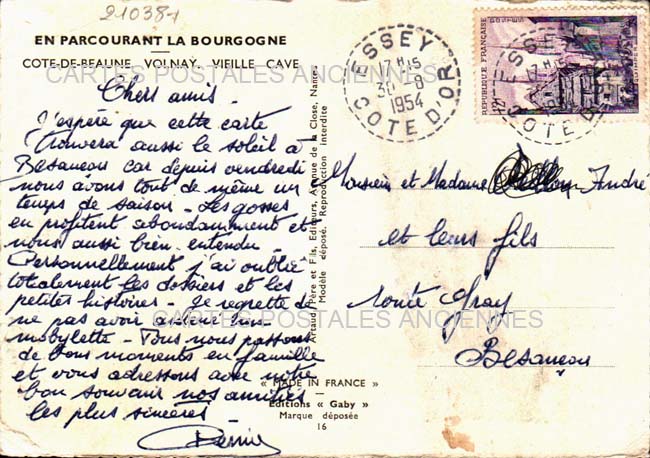 210381
EN PARCOURANT LA BOURGOGNE
COTE-DE-BEAUNE. VOLNAY. VIEILLE CAVE
CARTES POSTALES ANCIENNES
Chers amis.
J'espère que cette carte
trouvera aussi le soleil à
Besancon car depuis vendredi
nous avons tout de même un
temps de saison. Les gosses
en profitent abondamment et
nous aussi bien entendu.
Personnellement j'ai oublié
totalement les dossiers et les
petites histoires. Je regrette de
ne pas avoir amené ma
mobylette. Tous nous passons
de bons moments en famille
et vous adressons avec notre
bon souvenir nos amitiés
les plus sincères
Artaud Père et Fils, Editeurs, Avenue de la Close, Nantes
Modèle déposé. Reproduction interdite
« MADE IN FRANCE »
Editions « Gaby »
Marque déposée
16
ESSEY
17 H 15
30 - 8
1954
COTE D'OR
REPUBLIQUE FRANÇAISE
POSTES
QUIMPER
12F
ESSEY
COTE D'OR
Monsieur et Madame André
et leurs fils
route Gray
Besancon
CARTES POSTALES ANCIENNES